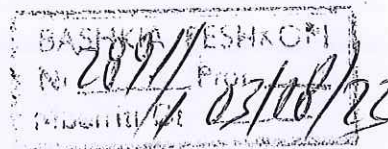 BASHKIA PESHKOPI
Nr 2891/1 Prot
Mbërritur 03/08/22